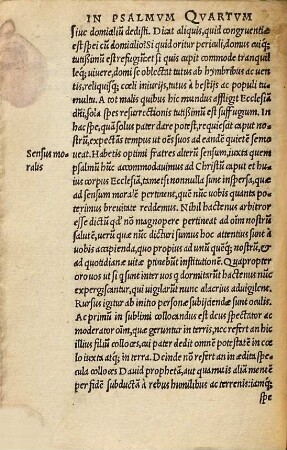 IN PSALMVM QVARTVM
siue domialiũ dedisti. Dixat aliquis, quid congruentiæ
est spei cũ domialio? Si quid oritur periculi, domus cuiq;
tutissimũ est refugiũ: et si quis capit commode tranquil
leq; uiuere, domi se oblectat tutus ab hymbribus ac uen
tis, reliquisq; cœli iniurijs, tutus à bestijs ac populi tu-
multu. A tot malis quibus hic mundus affligit Ecclesiã
dñi, sola spes resurrectionis tutissimũ est suffugium. In
hac spe, quã solus pater dare potest, requiescat caput no
strũ, expectãs tempus ut oẽs suos ad eandẽ quietẽ semo
ueat. Habetis optimi fratres alterũ sensum, iuxta quem
psalmũ hũc accommodauimus ad Christũ caput et hu
ius corpus Ecclesiã, tametsi nonnulla sint inspersa, quæ
ad sensum moralẽ pertinent, quẽ nũc uobis quanta po-
terimus breuitate reddemus. Nihil hactenus arbitror
esse dictũ qd' nõ magnopere pertineat ad oĩm nostrũ
salutẽ, uerũ quæ nũc dicturi sumus hoc attentius sunt à
uobis accipienda, quo propius ad unũ quẽq; nostrũ, et
ad quotidianæ uitæ ptinebũt institutionẽ. Quapropter
oro uos ut si q sunt inter uos q dormitarũt hactenus nũc
expergiscantur, qui uigilarunt nunc alacrius aduigilent.
Rursus igitur ab initio personæ subijciendæ sunt oculis.
Ac primũ in sublimi collocandus est deus spectator ac
moderator oĩm, quæ geruntur in terris, nec refert an hic
illius filiũ colloces, cui pater dedit omnẽ potestatẽ in cœ
lo iuxta atq; in terra. Deinde nõ refert an in ædita spe-
cula colloces Dauid prophetã, aut quamuis aliã men-
per fidẽ subductã à rebus humilibus ac terrenis: iamq;
spe
Sensus mo
ralis